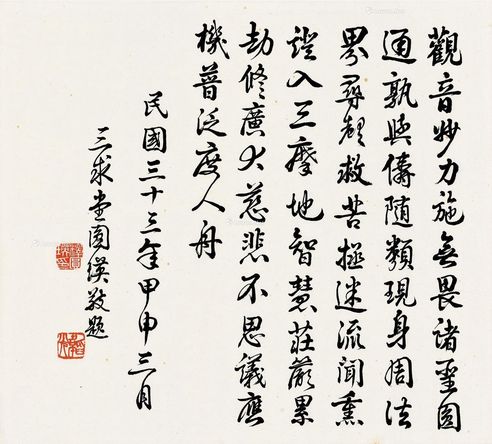 觀音妙力施無畏諸聖圓
通孰與儔隨類現身周法
界尋聲救苦拯迷流聞熏
證入三摩地智慧莊嚴累
劫修廣大慈悲不思議應
機普泛度人舟
民國三十三年甲申三月
三求堂圓瑛敬題